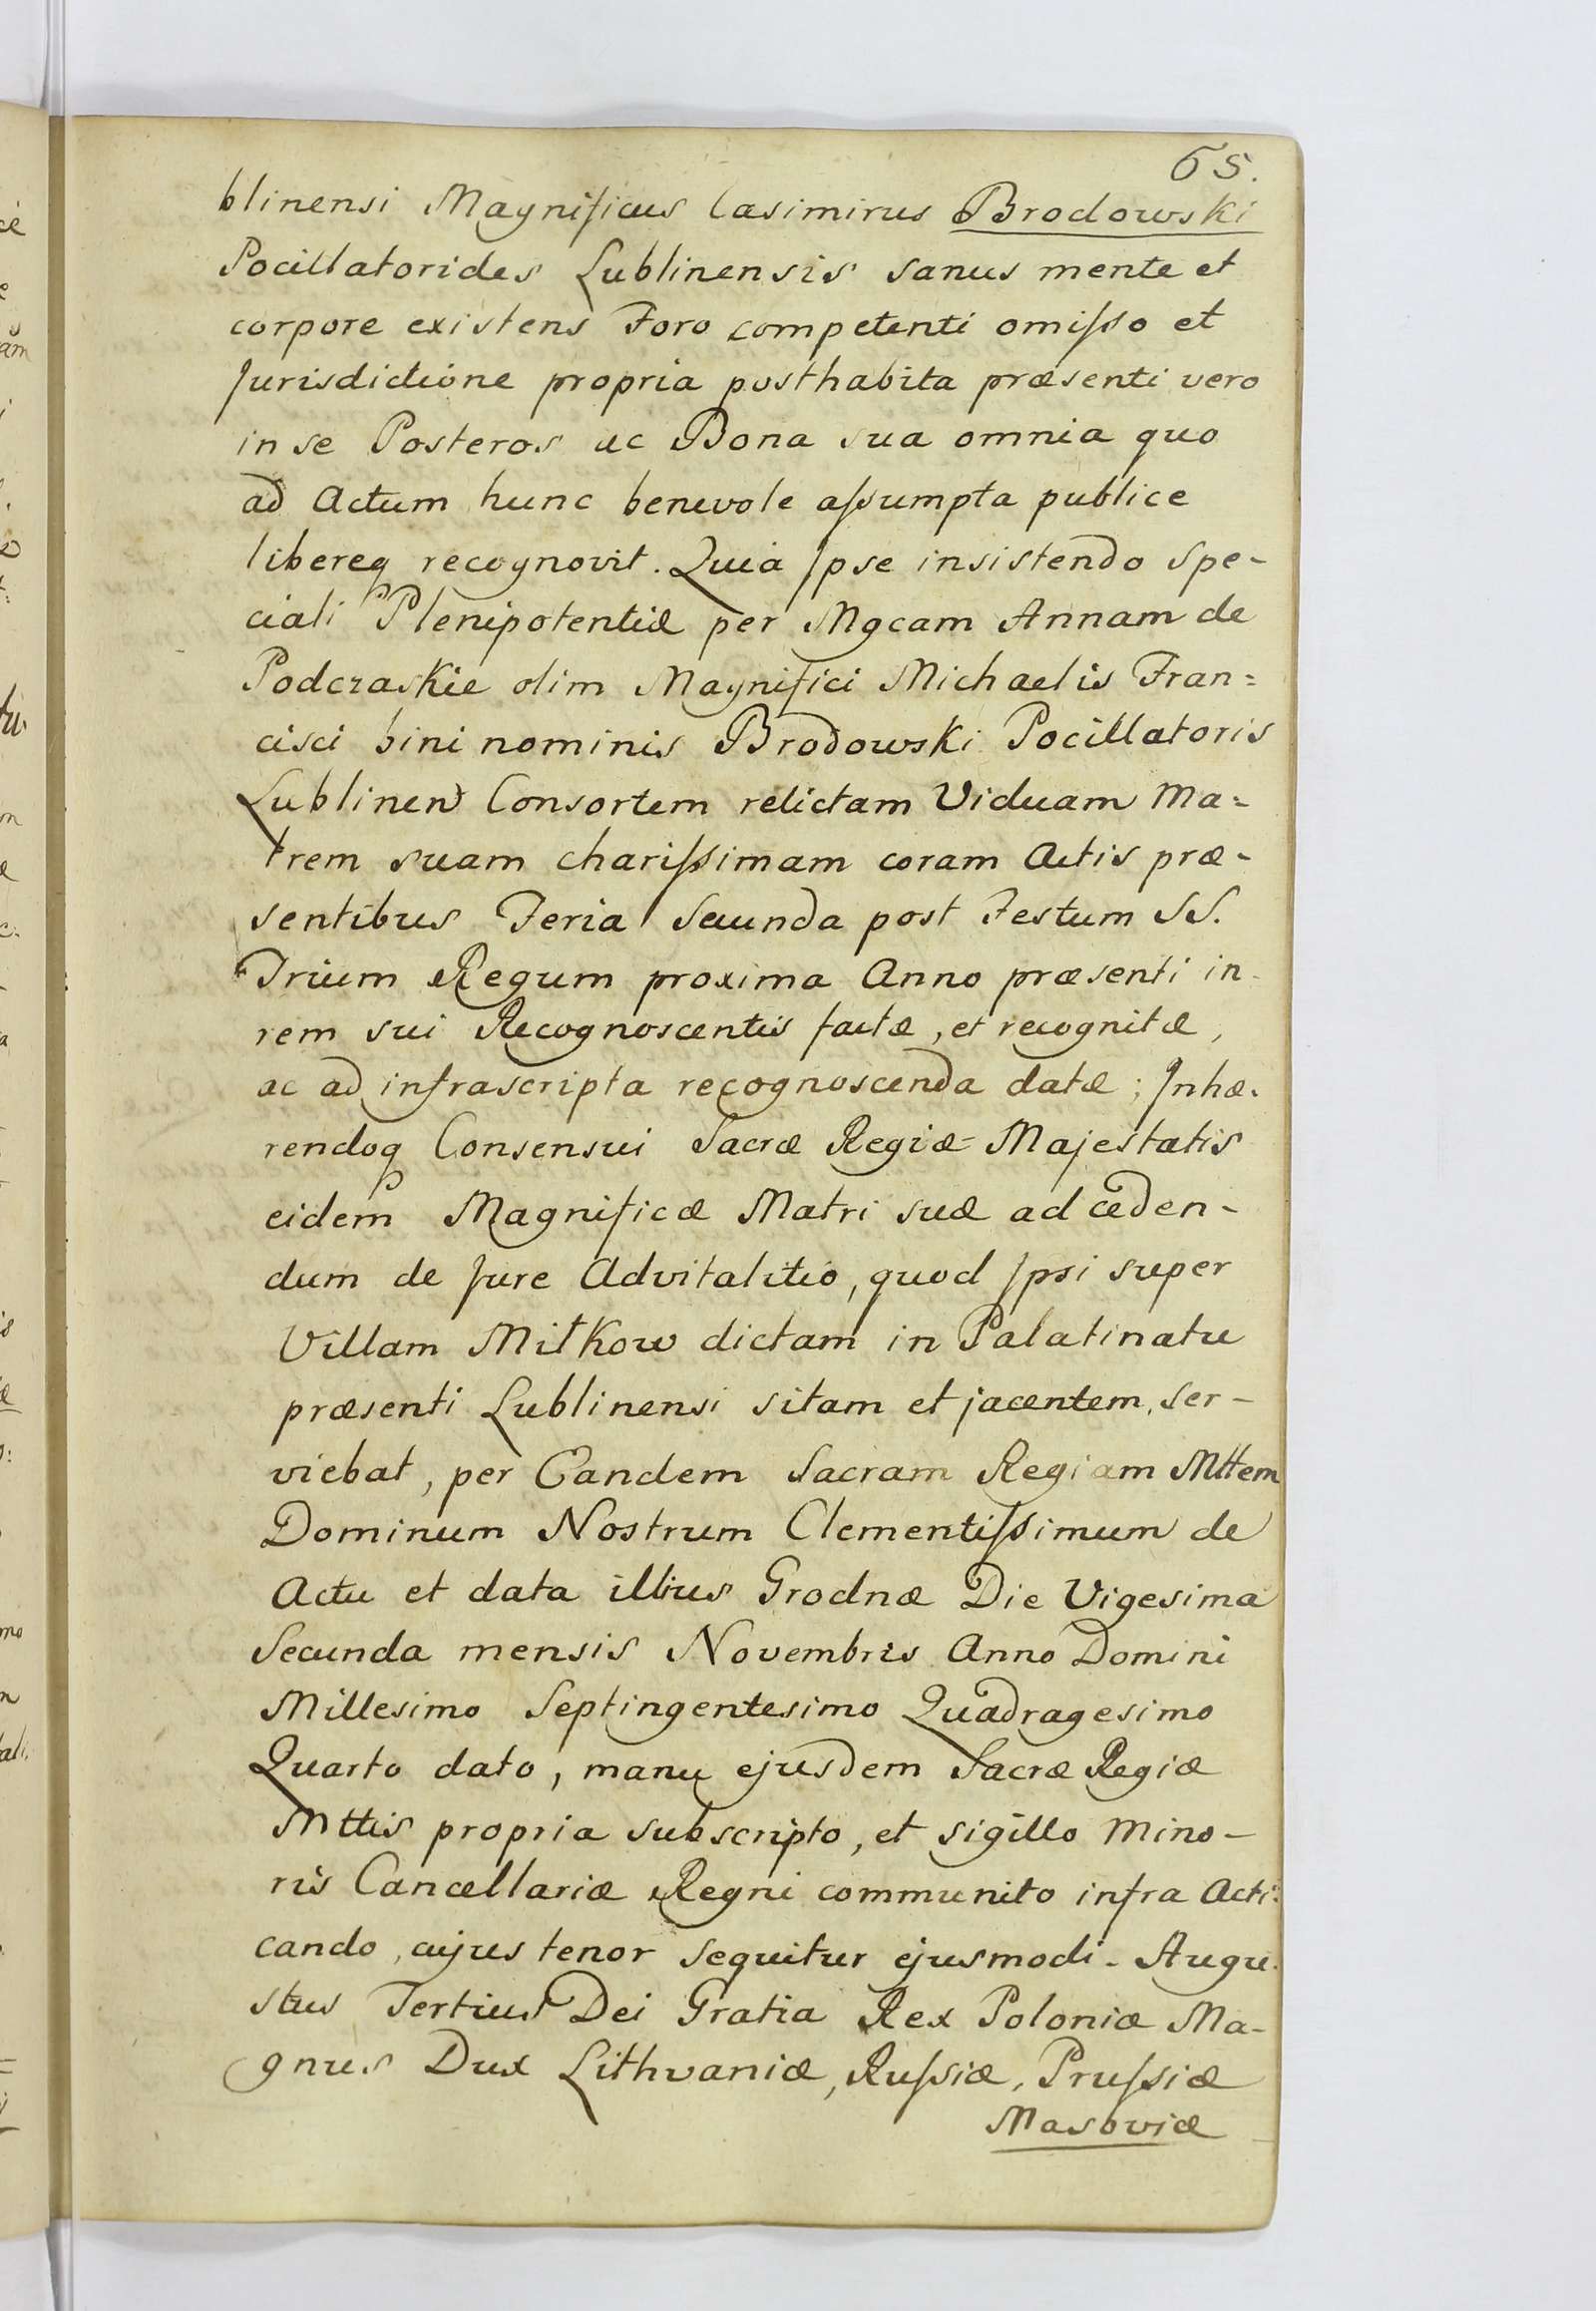 65.
blinensi Magnificus Casimirus Brodowski
Pocillatorides Lublinensis sanus mente et
corpore existens Foro competenti omiſso et
Jurisdictione propria posthabita præsenti vero
in se Posteros ac Bona sua omnia quo
ad Actum hunc benevole aſsumpta publice
libereq recognovit. Quia Ipse insistendo Spe-
ciali Plenipotentiæ per Mgcam Annam de
Podczaskie olim Magnifici Michaelis Fran=
cisci bini nominis Brodowski Pocillatoris
Lublinen Consortem relictam Viduam Ma=
trem suam chariſsimam coram Actis præ-
sentibus Feria Secunda post Festum SS.
Trium Regum proxima Anno præsenti in
rem sui Recognoscentis factæ, et recognitæ,
ac ad infrascripta recognoscenda datæ; Inhæ-
rendoq Consensui Sacræ Regiæ Majestatis
eidem Magnificæ Matri suæ ad ceden-
dum de Jure Advitalitio, quod Ipsi super
Villam Mitkow dictam in Palatinatu
præsenti Lublinensi sitam et jacentem, ser-
viebat, per Eandem Sacram Regiam Mttem
Dominum Nostrum Clementiſsimum de
Actu et data illius Grodnæ Die Vigesima
Secunda mensis Novembris Anno Domini
Millesimo Septingentesimo Quadragesimo
Quarto dato, manu ejusdem Sacræ Regiæ
Mttis propria subscripto, et sigillo Mino-
ris Cancellariæ Regni communito infra Acti=
cando, cujus tenor sequitur ejusmodi. Augu-
stus Tertius Dei Gratia Rex Poloniæ Ma-
gnus Dux Lithvaniæ, Ruſsiæ, Pruſsiæ
Masoviæ